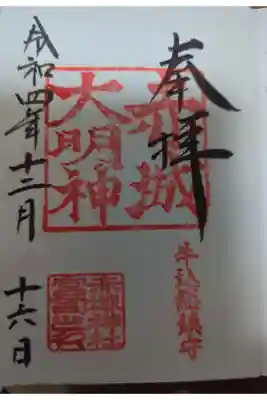 奉拝
赤城
大明神
牛込総鎮守
令和四年十二月
十六日
赤城神社